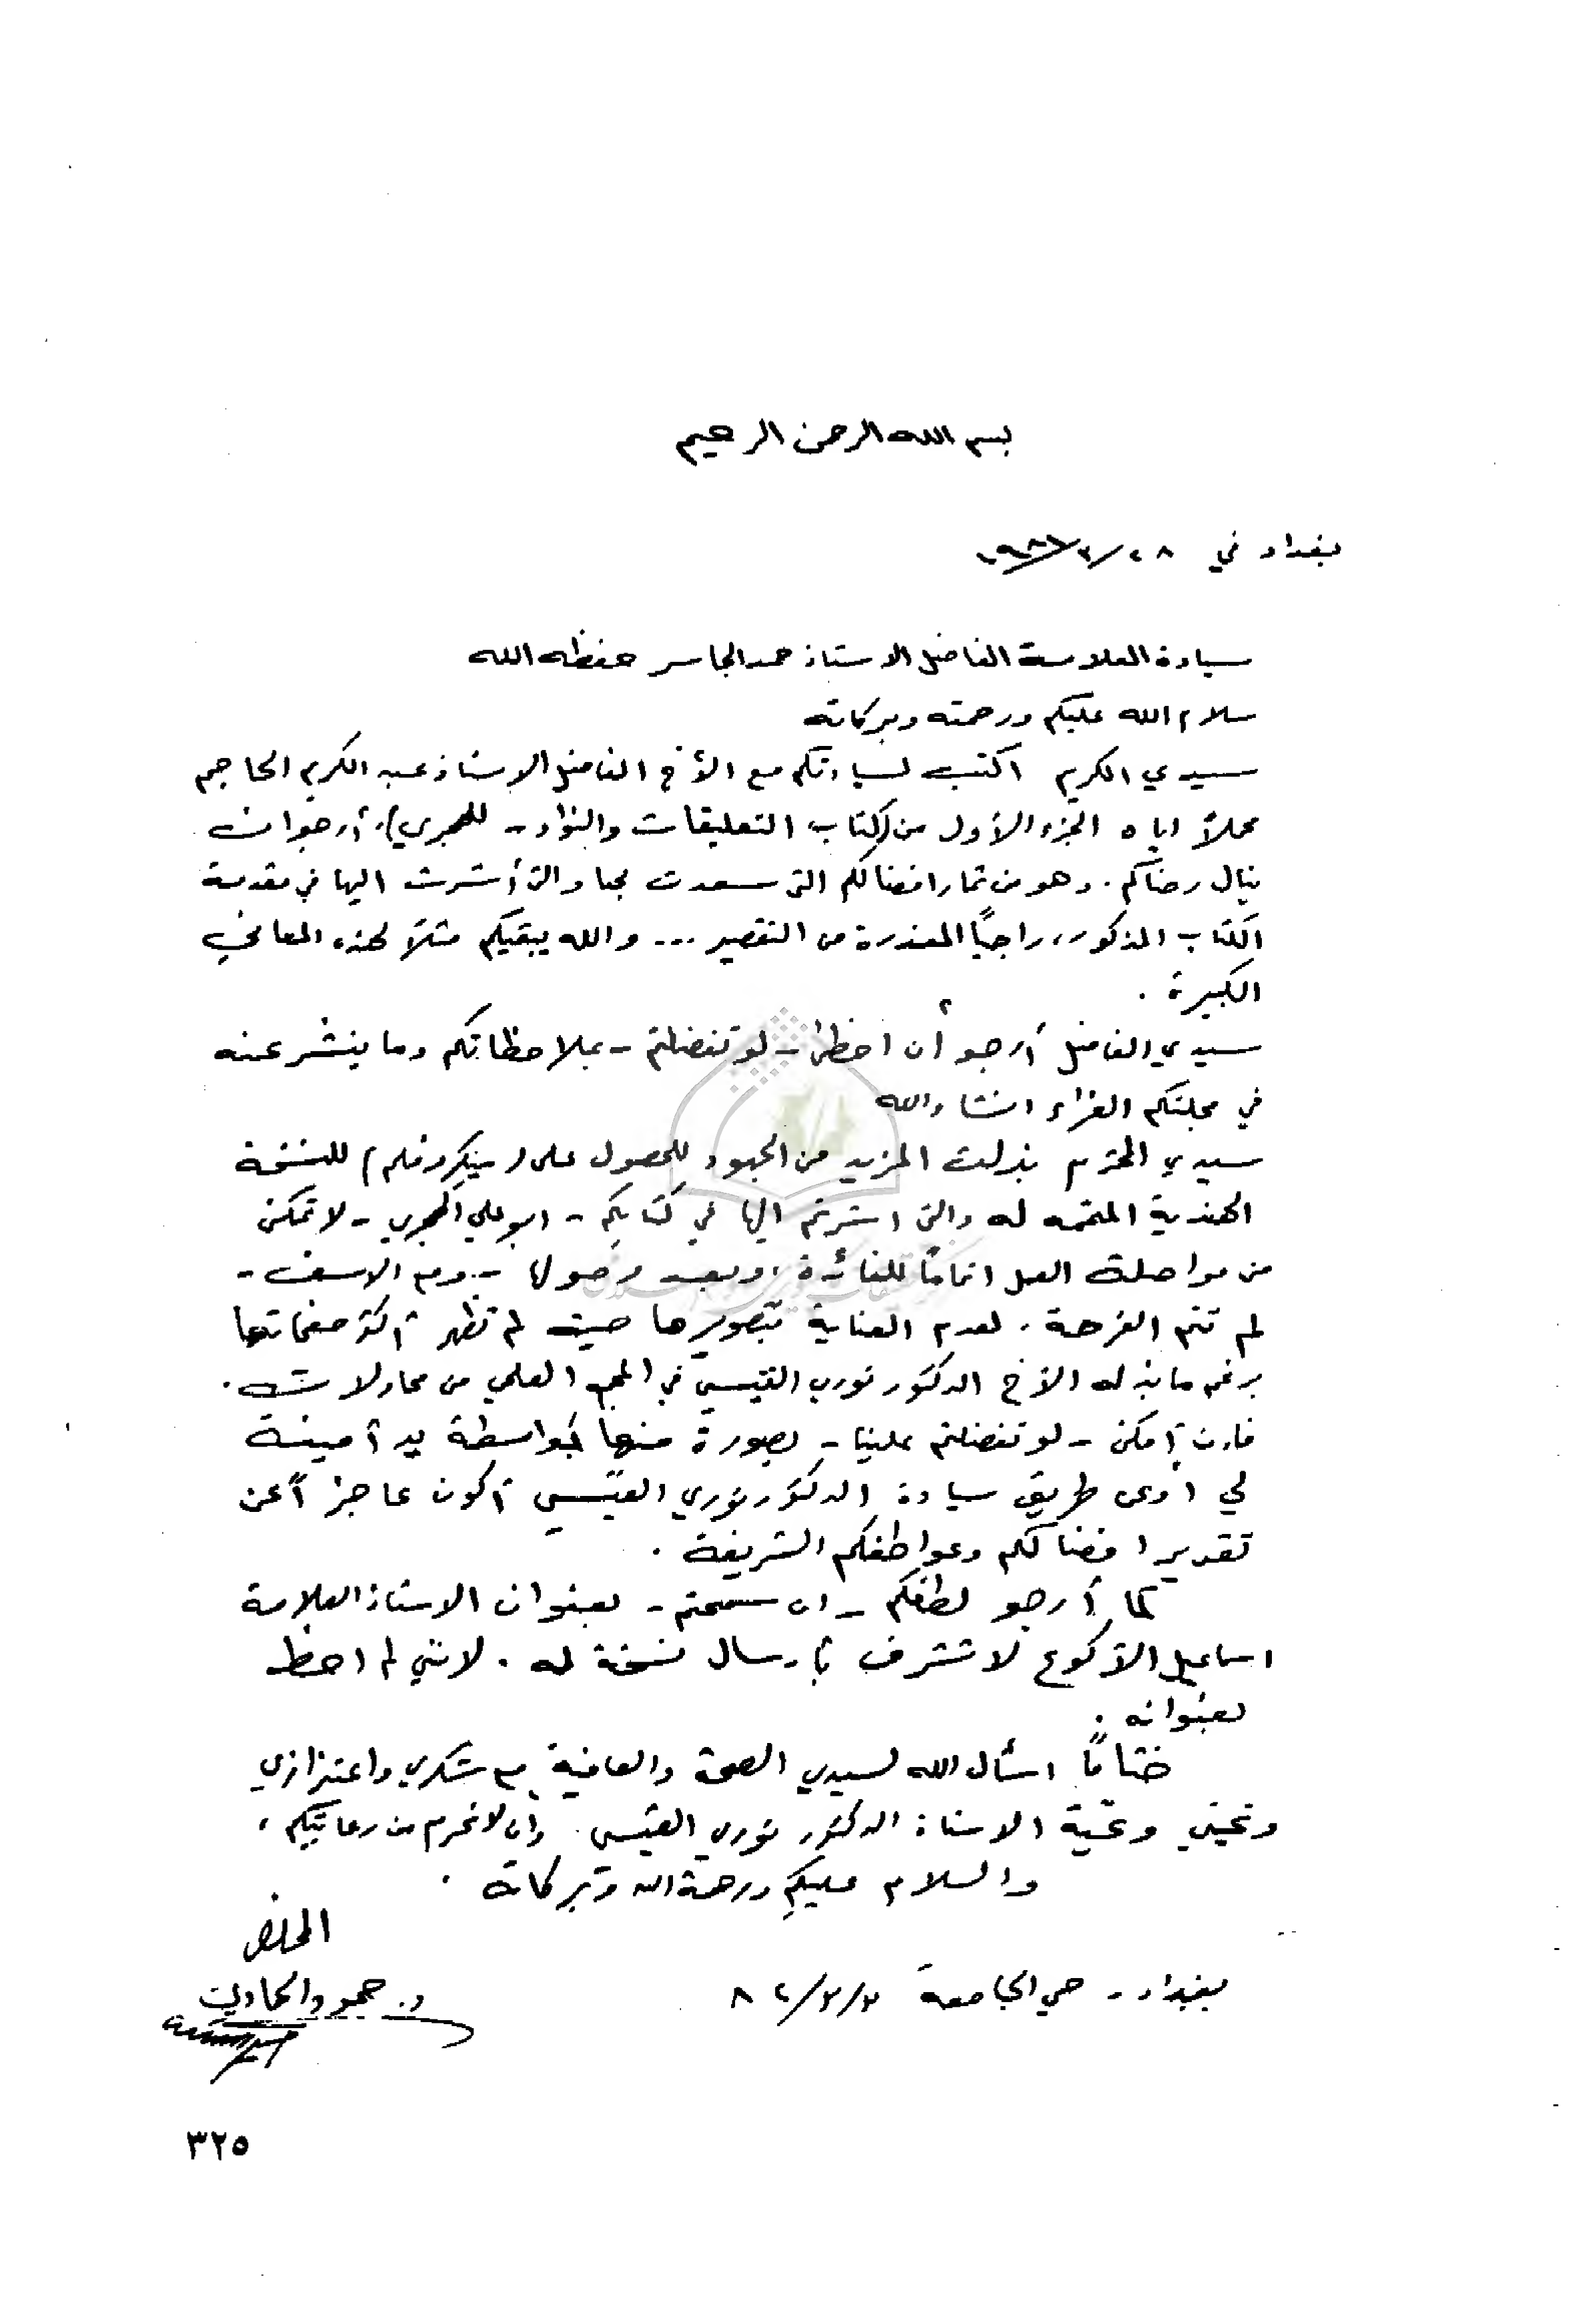 بسم الله الرحمن الرحيم
بغداد في
سيادة العلامة الفاضل الاستاذ حمد الجاسر حفظه الله
سلام الله عليكم ورحمته وبركاته
سيدي الكريم اكتب لسيادتكم مع الأخ الفاضل الاستاذ عبد الكريم الحاجم
محملاً اياه الجزء الأول من (كتاب التعليقات والنوادر - للهجري)، أرجو ان
ينال رضاكم. وهو من ثمار افضالكم التي سعدت بها والتي أشرت اليها في مقدمة
الكتاب المذكور، راجياً المعذرة من التقصير ... والله يبقيكم مثلاً لهذه المعاني
الكبيرة .
سيدي الفاضل أرجو أن احظى - لو تفضلتم - بملاحظاتكم وما ينشر عنه
في مجلتكم الغراء انشاء الله
سيدي المحترم بذلت المزيد من الجهود للحصول على (ميكروفلم) للنسخة
الهندية المتممه له والتي اشرتم اليها في كتابكم - ابو علي الهجري - لا تمكن
من مواصلة العمل اتماماً للفائدة، وبعد وصولها - ومع الاسف -
لم تتم الفرحة، لعدم العناية بتصويرها حيث لم تظهر أكثر صفحاتها
برغم ما بذله الأخ الدكتور نوري القيسي في المجمع العلمي من محاولات .
فان أمكن - لو تفضلتم علينا - بصورة منها بواسطة يد أمينة
لي أو عن طريق سيادة الدكتور نوري القيسي أكون عاجزاً عن
تقدير افضالكم وعواطفكم الشريفة .
كما أرجو لطفكم - ان سمحتم - بعنوان الاستاذ العلامة
اسماعيل الأكوع لاتشرف بإرسال نسخة له . لانني لم احظ
بعنوانه .
ختاماً اسأل الله لسيدي الصحة والعافية مع شكري واعتزازي
وتحيتي وتحية الاستاذ الدكتور نوري القيسي. وأن لا نحرم من رعايتكم،
والسلام عليكم ورحمة الله وبركاته .
المخلص
د. حمود الحمادي
بغداد - حي الجامعة
٣٢٥